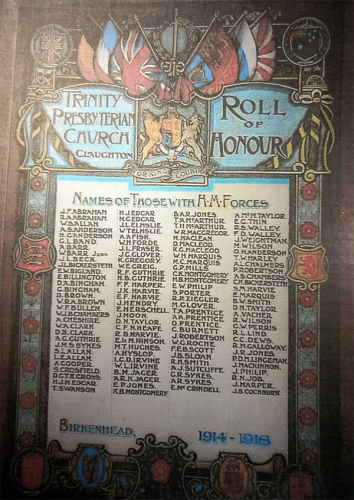 TRINITY
PRESBYTERIAN
CHURCH
CLAUGHTON
ROLL
OF
HONOUR
NAMES OF THOSE WITH H.M. FORCES
J.F. ABRAHAM
R.A. ABRAHAM
W.S. ALLAN
A. SANDERSON
M. ANDERSON
G.L. BAND
A. BARR
W. BARR JUNR
J.L. BECK
E.W. BIGLAND
E. BILLINGTON
D.A. BINGHAM
C. BINGHAM
D. BROWN
W.R.A. BROWN
W.F. BULLEN
W.J. CHAMBERS
A. CHESHIRE
W.A. CLARK
D.B. CLARK
A.G. GUTHRIE
J.M.S. SYKES
S.J. ALLAN
S. CROSFIELD
H.J.M. EDGAR
T. SWANSON
H.J. EDGAR
N.G. EDGAR
J.L. ELMSLIE
W. TELMSLIE
A.B. FISK
W.H. FORDE
J.L. FRASER
J.G. GLOVER
K. GREGORY
C.F. GREIG
R.F. GUTHRIE
N.B. GUTHRIE
F.F. HARPER
J.K. HARVIE
F.F. HARVIE
J. HENDRY
E. HERSCHELL
J. MOON
D.N. TAYLOR
C.F.N. HEAPE
E.B. HARVIE
E. McM. HINSON
M.T. HUGHES
A. HYSLOP
C.D. IRVINE
W.L. IRVINE
B.M. JAGER
A.R.H. JAGER
E.P. JONES
H.B. MONTGOMERY
B.A.R. JONES
T.S. McARTHUR
T.H. McARTHUR
W.R. MACGREGOR
H. MACLEOD
D. MACLEOD
K.G. MACLEOD
W.H. MARQUIS
F.Y. MARQUIS
G.P. MILLS
C.K. MONTGOMERY
H.B. MONTGOMERY
E.W. PHILIP
S. PORTER
R.P. ZIEGLER
M. GLOVER
T.A. PRENTICE
A.A. PRENTICE
O. PRENTICE
C. BURNETT
J. ROBERTSON
W. GROCHE
F.E.B. SCOTT
J.B. SLOAN
R.H. SMITH
A.J. SUTCLIFFE
G.R. SYKES
A.R. SYKES
E. McCRINDELL
A. McM. TAYLOR
E.G. THIN
R.S. WALLEY
F.D. WALLEY
J. WEIGHTMAN
M. WILSON
W. ANDERSON
T.W. HALL
E.L. CHALEY
P. ROBERTSON
A.S. CHAMBERS
C.H. BICKERSTETH
S.M. HARVIE
F. MARQUIS
W. SMITH
D.N. TAYLOR
A. VACHER
R. WILSON
G.W. PERRIS
R.L. LIND
C.C. DEWS
R. GALLOWAY
J.R. JONES
P.D.M. LINGEMAN
J. MACKINNON
J. PHILIP
R.N. JOB
J. HARPER
J.S. COCKBURN
BIRKENHEAD.
1914 - 1918